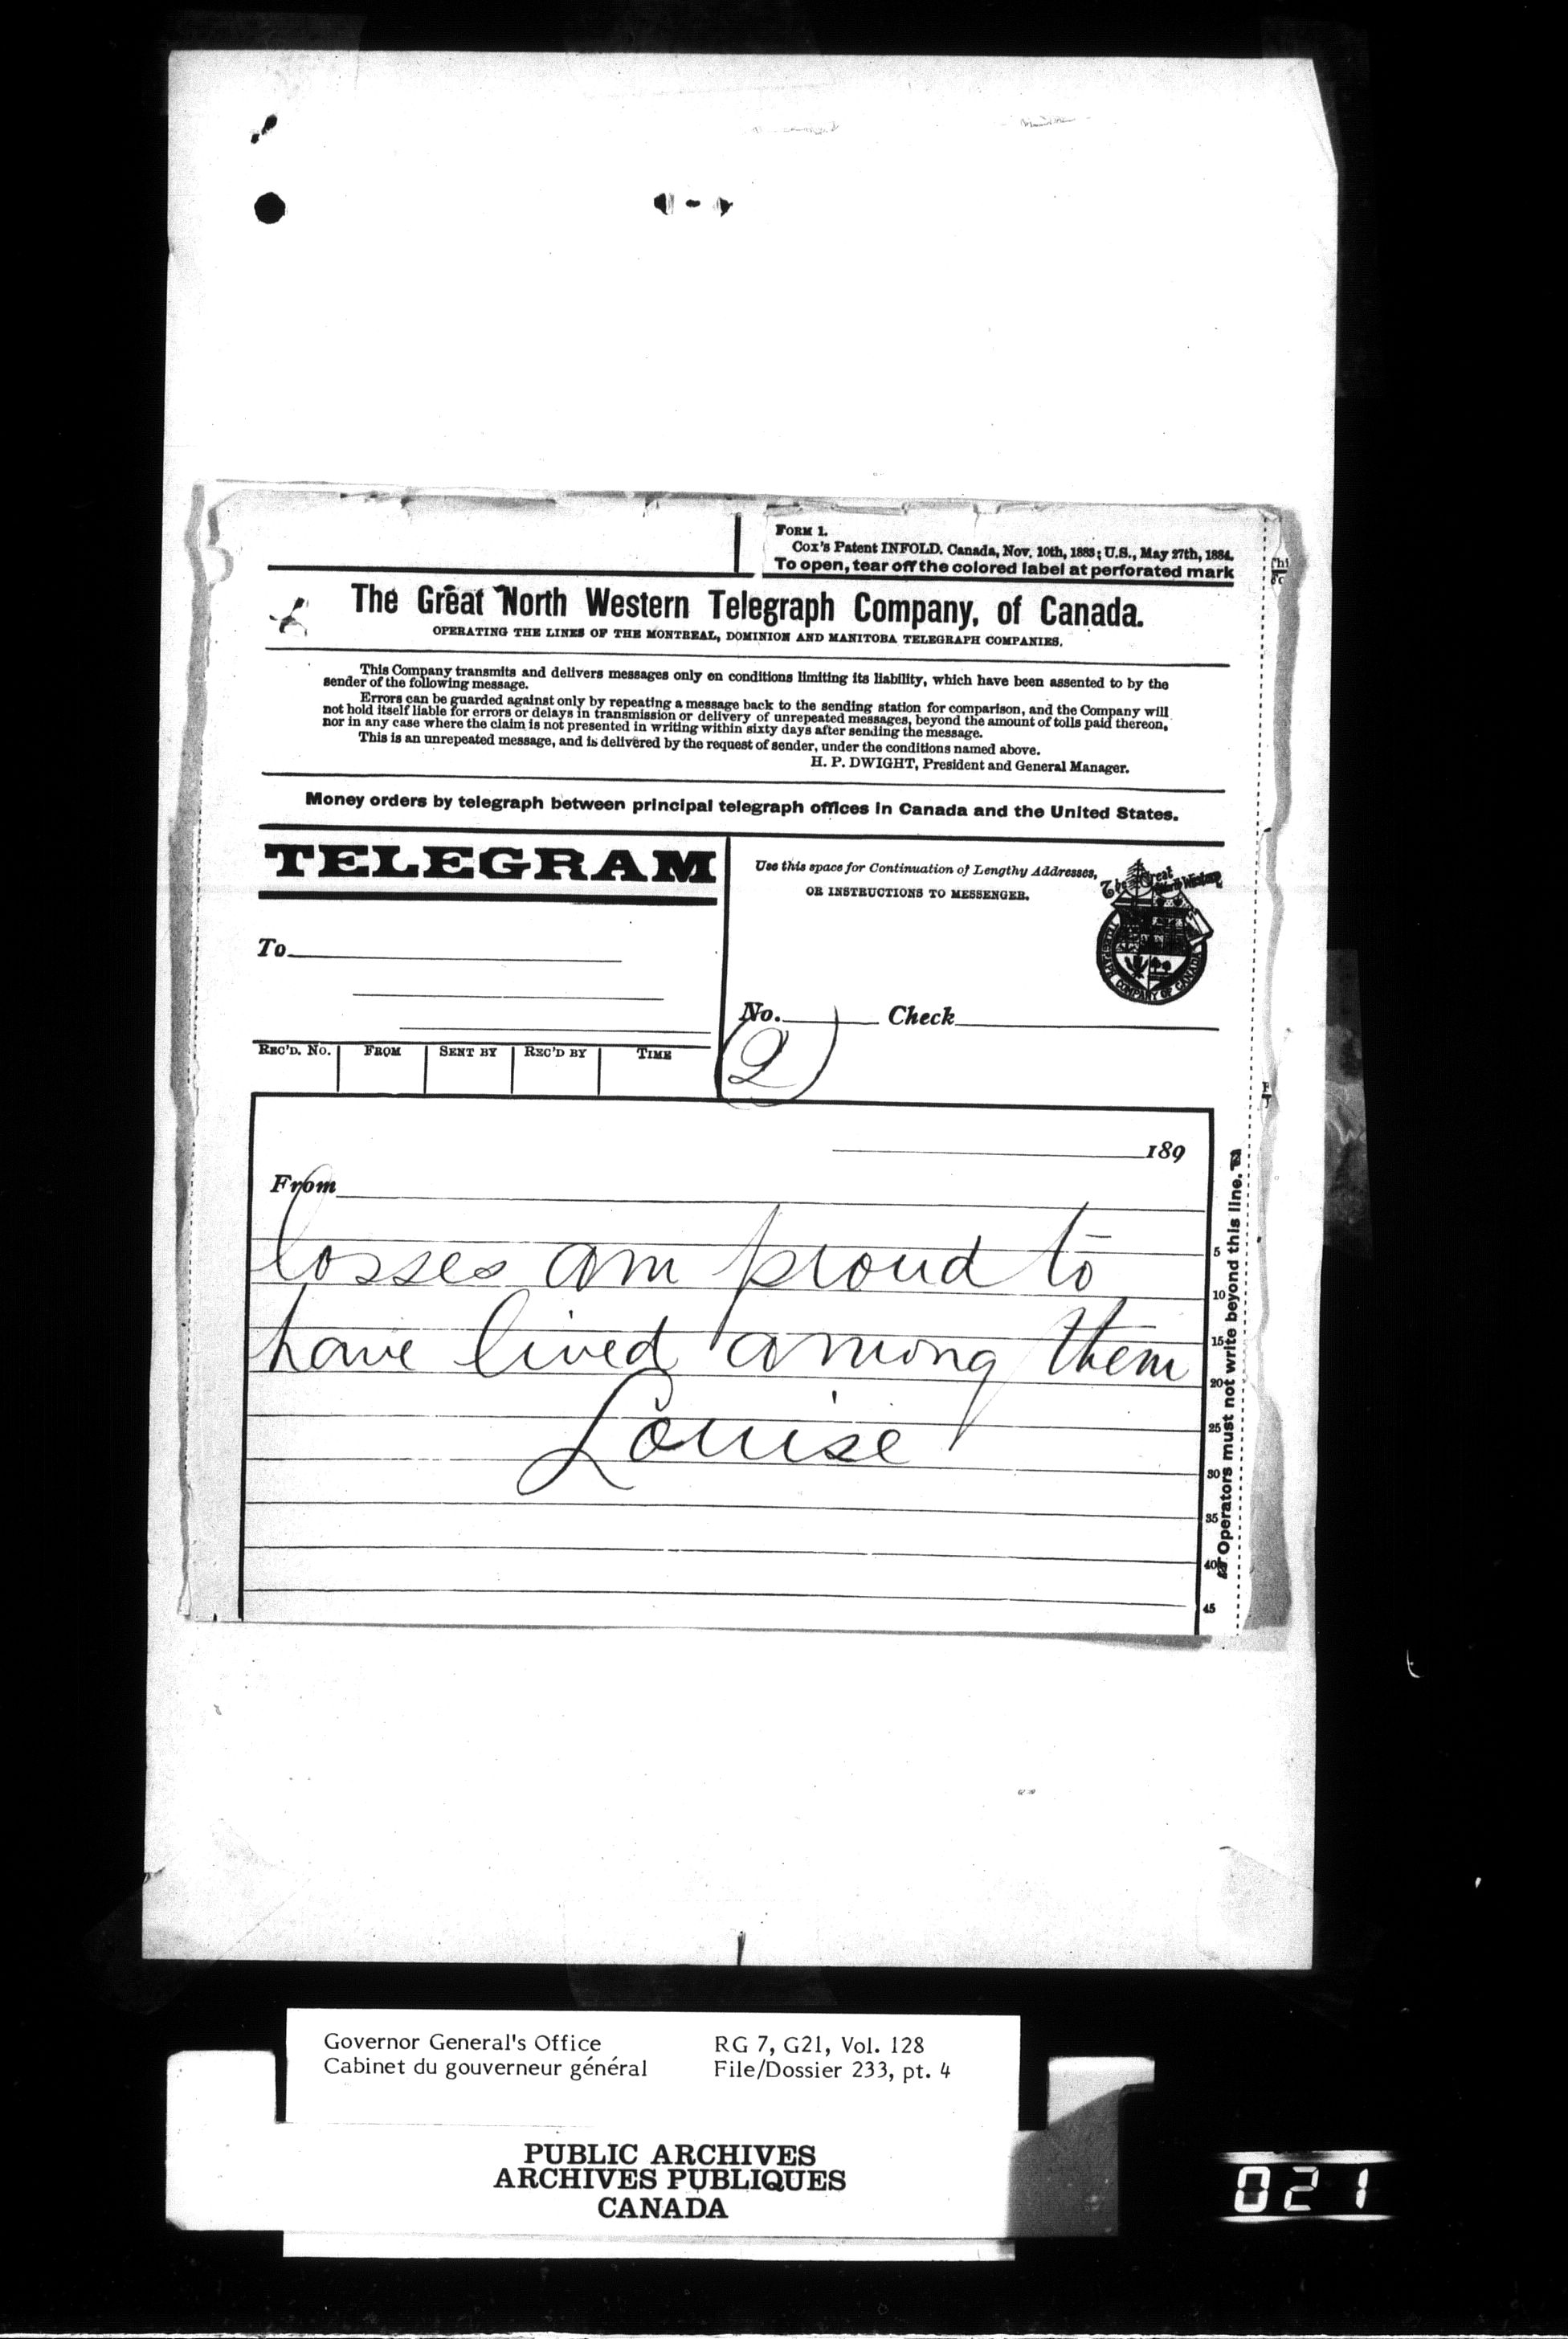 FORM 1.
Cox's Patent INFOLD. Canada, Nov. 10th, 1883; U.S., May 27th, 1884.
To open, tear off the colored label at perforated mark
The Great North Western Telegraph Company, of Canada.
OPERATING THE LINES OF THE MONTREAL, DOMINION AND MANITOBA TELEGRAPH COMPANIES.
This Company transmits and delivers messages only on conditions limiting its liability, which have been assented to by the
sender of the following message.
Errors can be guarded against only by repeating a message back to the sending station for comparison, and the Company will
not hold itself liable for errors or delays in transmission or delivery of unrepeated messages, beyond the amount of tolls paid thereon,
nor in any case where the claim is not presented in writing within sixty days after sending the message.
This is an unrepeated message, and is delivered by the request of sender, under the conditions named above.
H. P. DWIGHT, President and General Manager.
Money orders by telegraph between principal telegraph offices in Canada and the United States.
TELEGRAM
Use this space for Continuation of Lengthy Addresses,
OR INSTRUCTIONS TO MESSENGER.
The Great North Western
TELEGRAPH COMPANY OF CANADA
To
No. Check
2
REC'D. NO. FROM SENT BY REC'D BY TIME
189
From
losses am proud to
have lived among them
Louise
5
10
15
20
25
30
35
40
45
Operators must not write beyond this line.
Governor General's Office RG 7, G21, Vol. 128
Cabinet du gouverneur général File/Dossier 233, pt. 4
PUBLIC ARCHIVES
ARCHIVES PUBLIQUES
CANADA
021